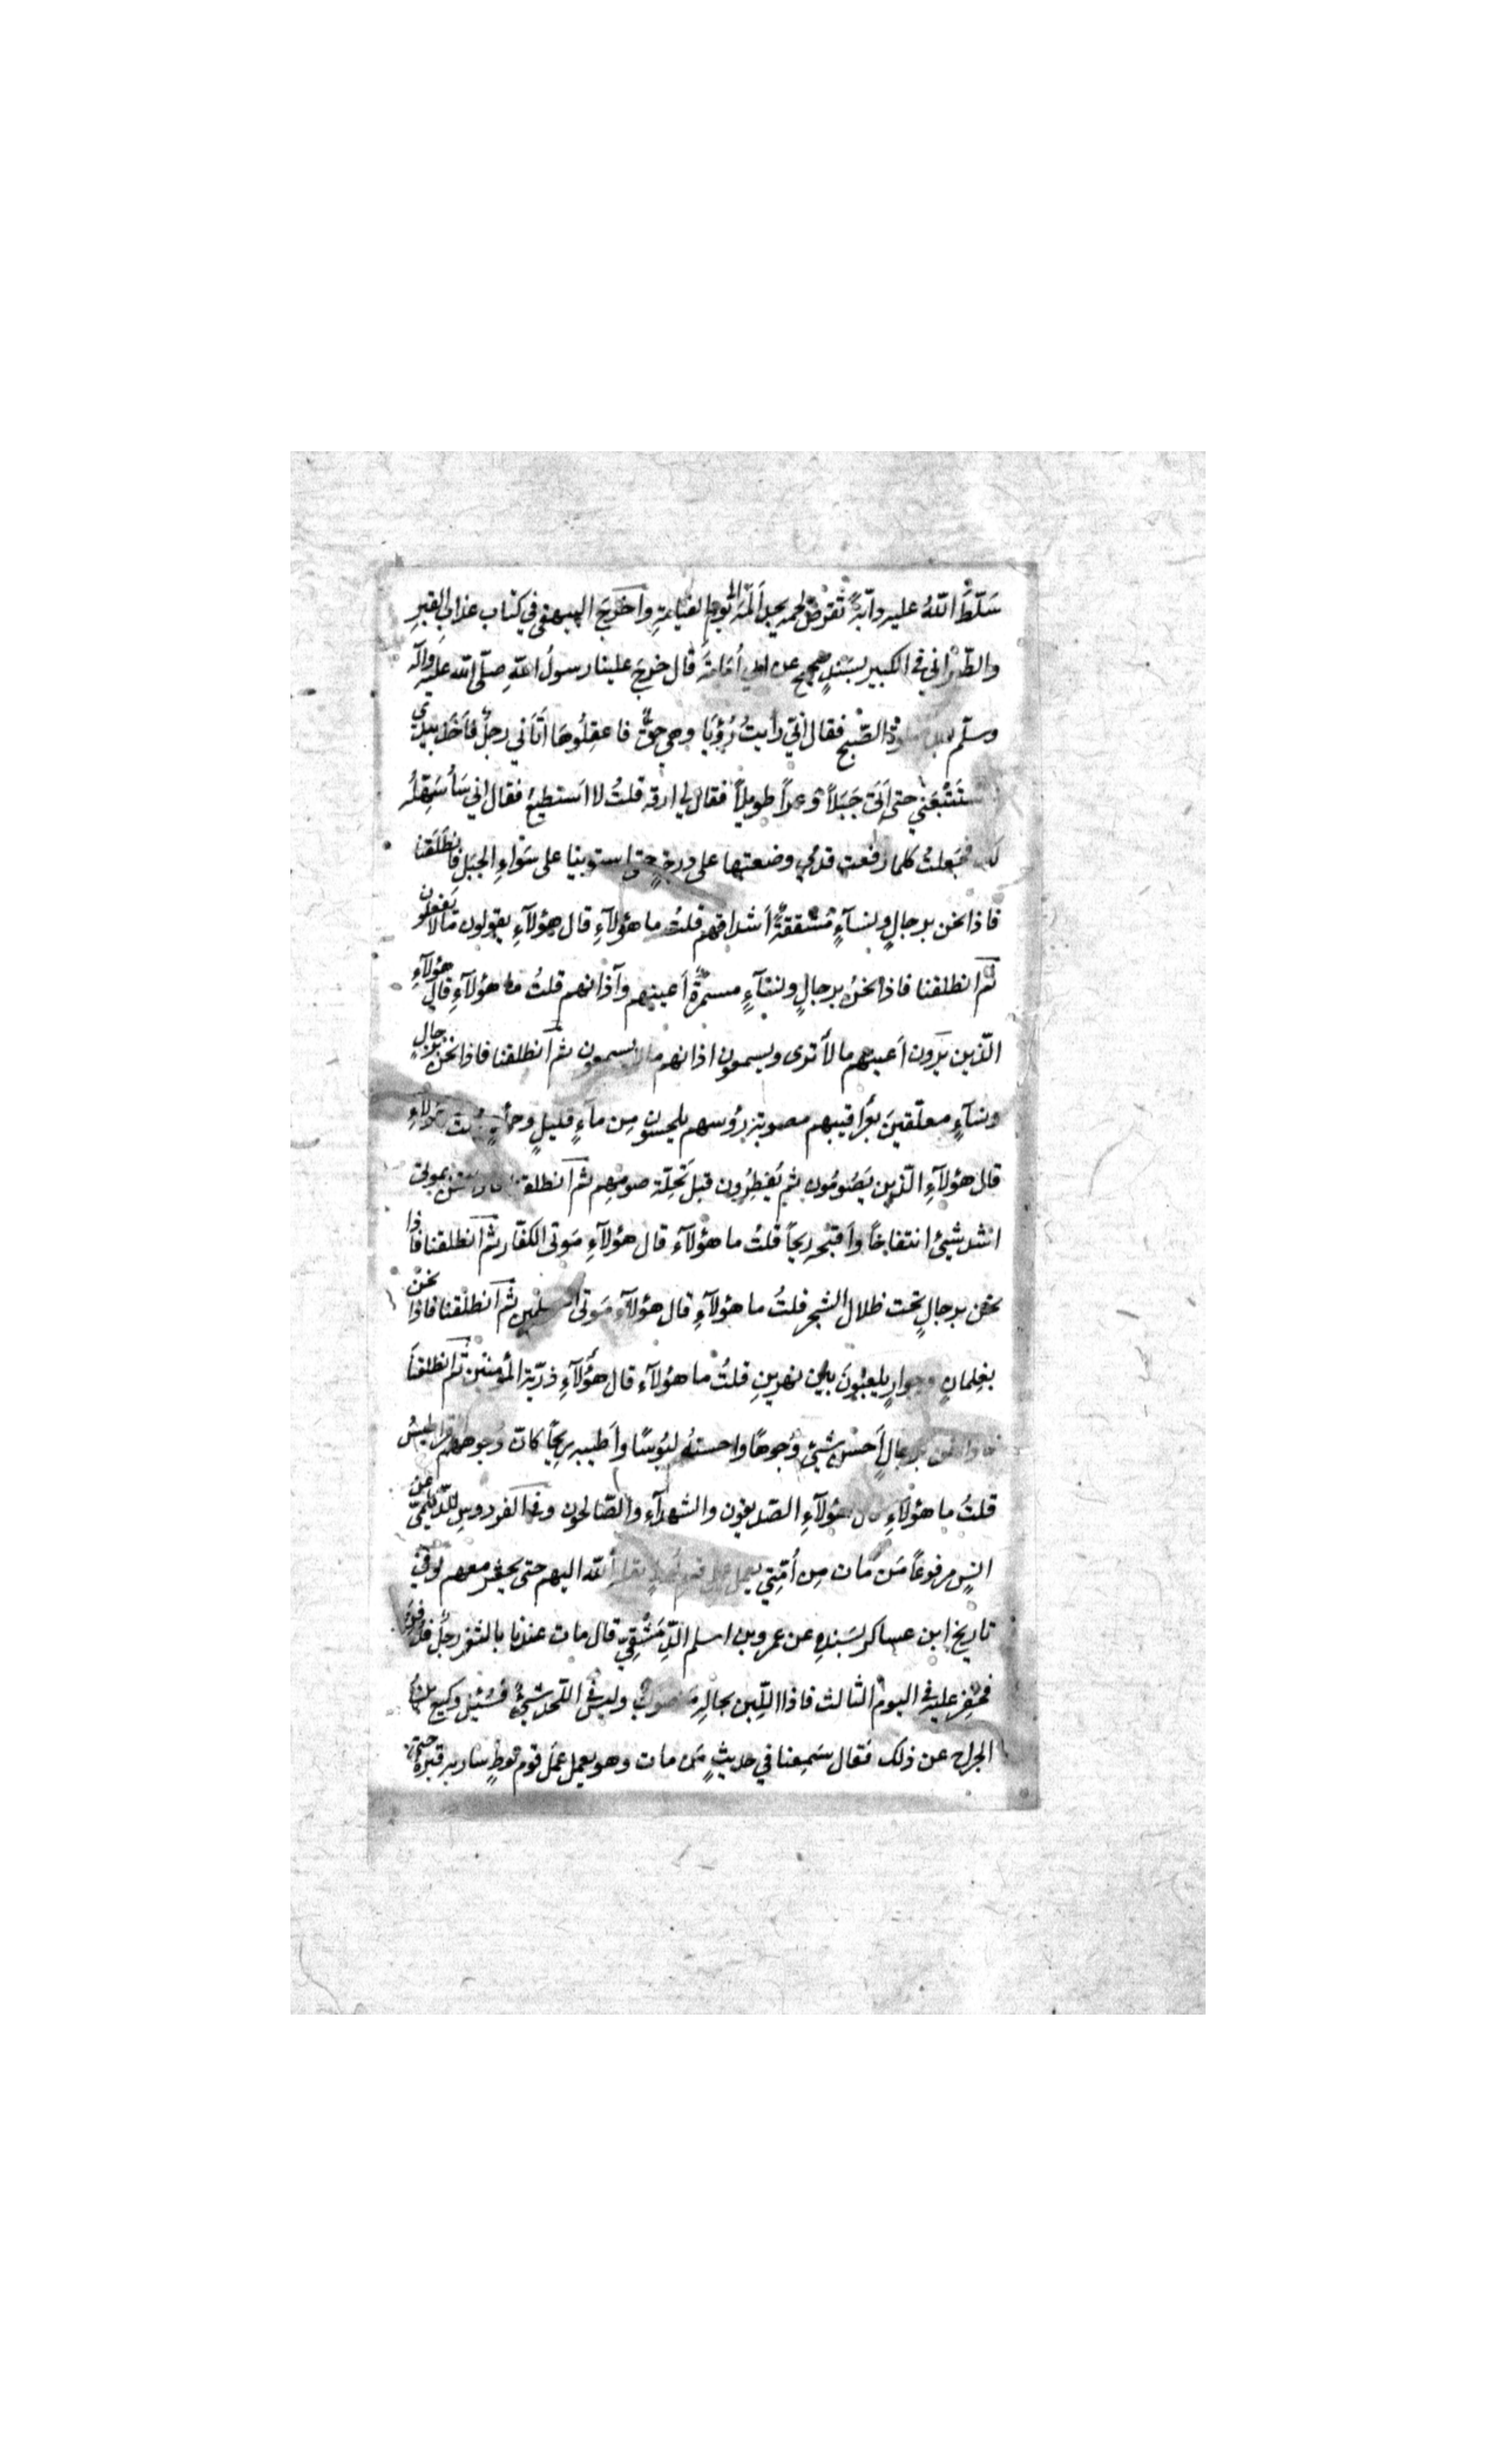 سَلَّطَ اللّٰهُ عليه دابّةً تقرض لحمه يجد أَلَمَهُ الى يوم القيامةِ واَخرَجَ البيهقي في كتاب عذابِ القبرِ
والطّبراني في الكبير بسَندٍ صحيح عن ابي أُمَامَةَ قال خرجَ علينا رسولُ اللّٰهِ صلّى اللّٰه عليه وآله
وسلّم بعد صلوة الصّبح فقال انّي رايتُ رُؤيَا وهي حقٌّ فاعقِلُوهَا اَتَاني رجلٌ فاَخَذ بيدي
فاستَتْبَعَني حتى اَتَى جَبَلاً وَعراً طويلاً فقال لي ارقه قلتُ لا اَستطيعُ فقال اني سَأُسَهِّلُه
لك فجَعلتُ كلما رفعت قدمي وضعتها على درجةٍ حتى استوينا على سَوَاءِ الجبَل فانطَلَقنا
فاذا نحن برجالٍ ونسآءٍ مُشَقّقةٌ اَشداقهم قلتُ ما هؤلآءِ قال هؤلآءِ يقولون مَالا يَفعلون
ثم انطلقنا فاذا نحنُ برجالٍ ونسَآءٍ مسمرّةٌ اَعينهم وآذانهم قلتُ ما هؤلآءِ قال هؤلآءِ
الّذين يَرَون اَعينهم مالا تَرى ويسمعون اذانهم مالا يسمعون ثم انطلقنا فاذا نحن برجالٍ
ونسآءٍ معلّقينَ بعَراقيبهم مصوبة رؤسهم يلحسون مِن مآءٍ قليلٍ وحمأٍ قلت ما هؤلآءِ
قال هؤلآءِ الّذين يَصُومُون ثم يُفطِرُون قبل تَحِلّة صومِهم ثم انطلقنا فاذا نحن بموتى
اشد شيئٍ انتفاخاً وَاَقبحِه ريحاً قلتُ ما هؤلآء قال هؤلآءِ مَوتى الكفّار ثم انطلقنا فاذا
نحن برجالٍ تحت ظلال الشجر قلتُ ما هؤلآءِ قال هؤلآء مَوتى المسلمين ثم انطلقنا فاذا نحن
بغِلمانٍ وجوارٍ يلعبُونَ بين نهرينِ قلتُ ما هؤلآء قال هؤلآءِ ذرّية المؤمنين ثم انطلقنَا
فاذا نحن برجالٍ اَحسنَ شيئٍ وُجوهًا واحسنهُ لبُوسًا واَطيبه ريحًا كانّ وُجوههم القراطيسُ
قلتُ ما هؤلآءِ قال هؤلآءِ الصّديقون والشهدآء والصّالحون وفي الفردوسِ للدّيلميّ عن
انسٍ مرفوعًا مَن مَات مِن اُمّتِي يعمل عمل قوم لوطٍ نقله اللّٰه اليهم حتى يحشر معهم وفي
تاريخ ابن عساكر بسَندِهِ عن عمرو بن اسلم الدِّمَشْقِيّ قال مات عندنا بالثغر رجلٌ فدُفِنَ
فحُفِر عليه في اليومِ الثالث فاذا اللَّبِن بحالِه مَنصوبٌ وليس في اللّحد شيئٌ فسُئِل وكيع بنُ
الجراح عن ذلك فقال سَمِعنا في حديثٍ مَن مات وهو يعمل عَمَل قوم لوطٍ سار به قبرُهُ حتى